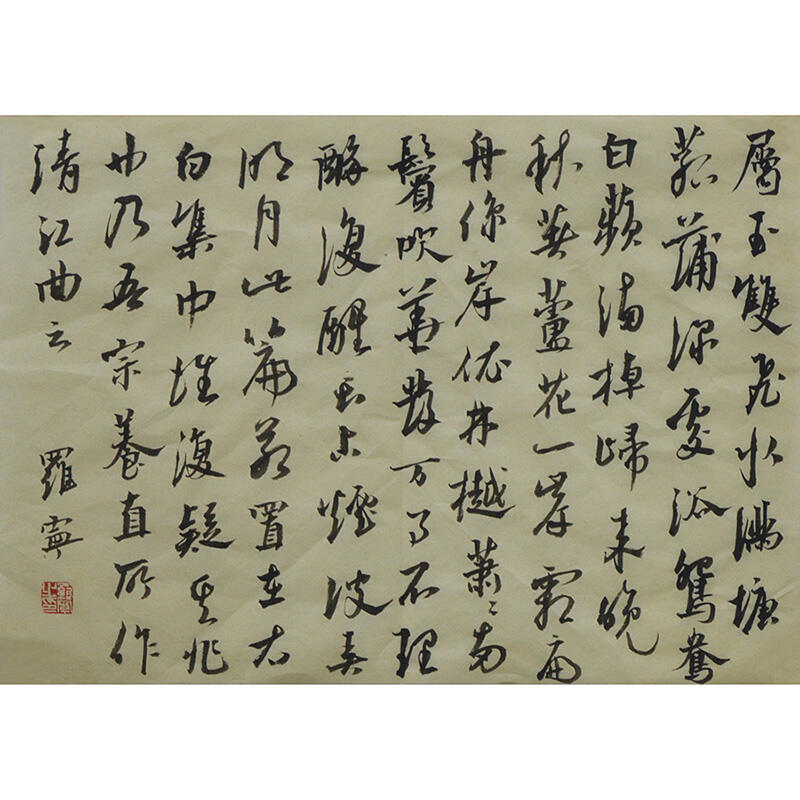 屬玉雙飛水滿塘
菰蒲深處浴鴛鴦
白蘋滿棹歸來晚
秋著蘆花一岸霜扁
舟係岸依林樾蕭〻兩
鬢吹華發万事不理
醉復醒長占煙波弄
明月此篇若置在太
白集中誰復疑其非
也乃吾宗養直所作
清江曲云 羅寧